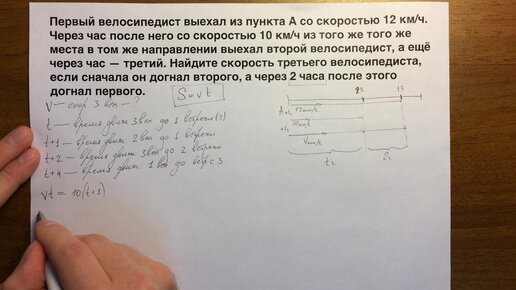 Первый велосипедист выехал из пункта А со скоростью 12 км/ч.
Через час после него со скоростью 10 км/ч из того же того же
места в том же направлении выехал второй велосипедист, а ещё
через час — третий. Найдите скорость третьего велосипедиста,
если сначала он догнал второго, а через 2 часа после этого
догнал первого.
S = vt
V — скор 3 вел — ?
t — время движ 3 вел до 1 встречи (2)
t+1 — время движ 2 вел до 1 встречи
t+2 — время движ 3 вел до 2 встречи
t+4 — время движ 1 вел до встр с 3
vt = 10(t+1)
23
13
A
12км/ч
10км/ч
Vкм/ч
t
2